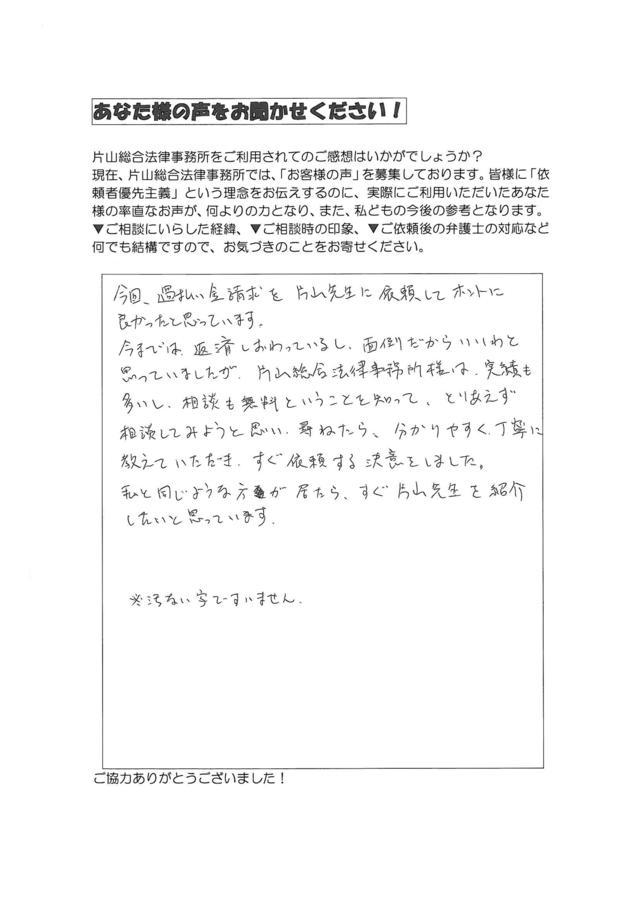 あなた様の声をお聞かせください！
片山総合法律事務所をご利用されてのご感想はいかがでしょうか？
現在、片山総合法律事務所では、「お客様の声」を募集しております。皆様に「依
頼者優先主義」という理念をお伝えするのに、実際にご利用いただいたあなた
様の率直なお声が、何よりの力となり、また、私どもの今後の参考となります。
▼ご相談にいらした経緯、▼ご相談時の印象、▼ご依頼後の弁護士の対応など
何でも結構ですので、お気づきのことをお寄せください。
今回、過払い金請求を片山先生に依頼してホントに
良かったと思っています。
今までは、返済しおわっているし、面倒だからいいわと
思っていましたが、片山総合法律事務所様は、実績も
多いし、相談も無料ということを知って、とりあえず
相談してみようと思い、尋ねたら、分かりやすく、丁寧に
教えていただき、すぐ依頼する決意をしました。
私と同じような方が居たら、すぐ片山先生を紹介
したいと思っています。
※汚ない字ですいません。
ご協力ありがとうございました！